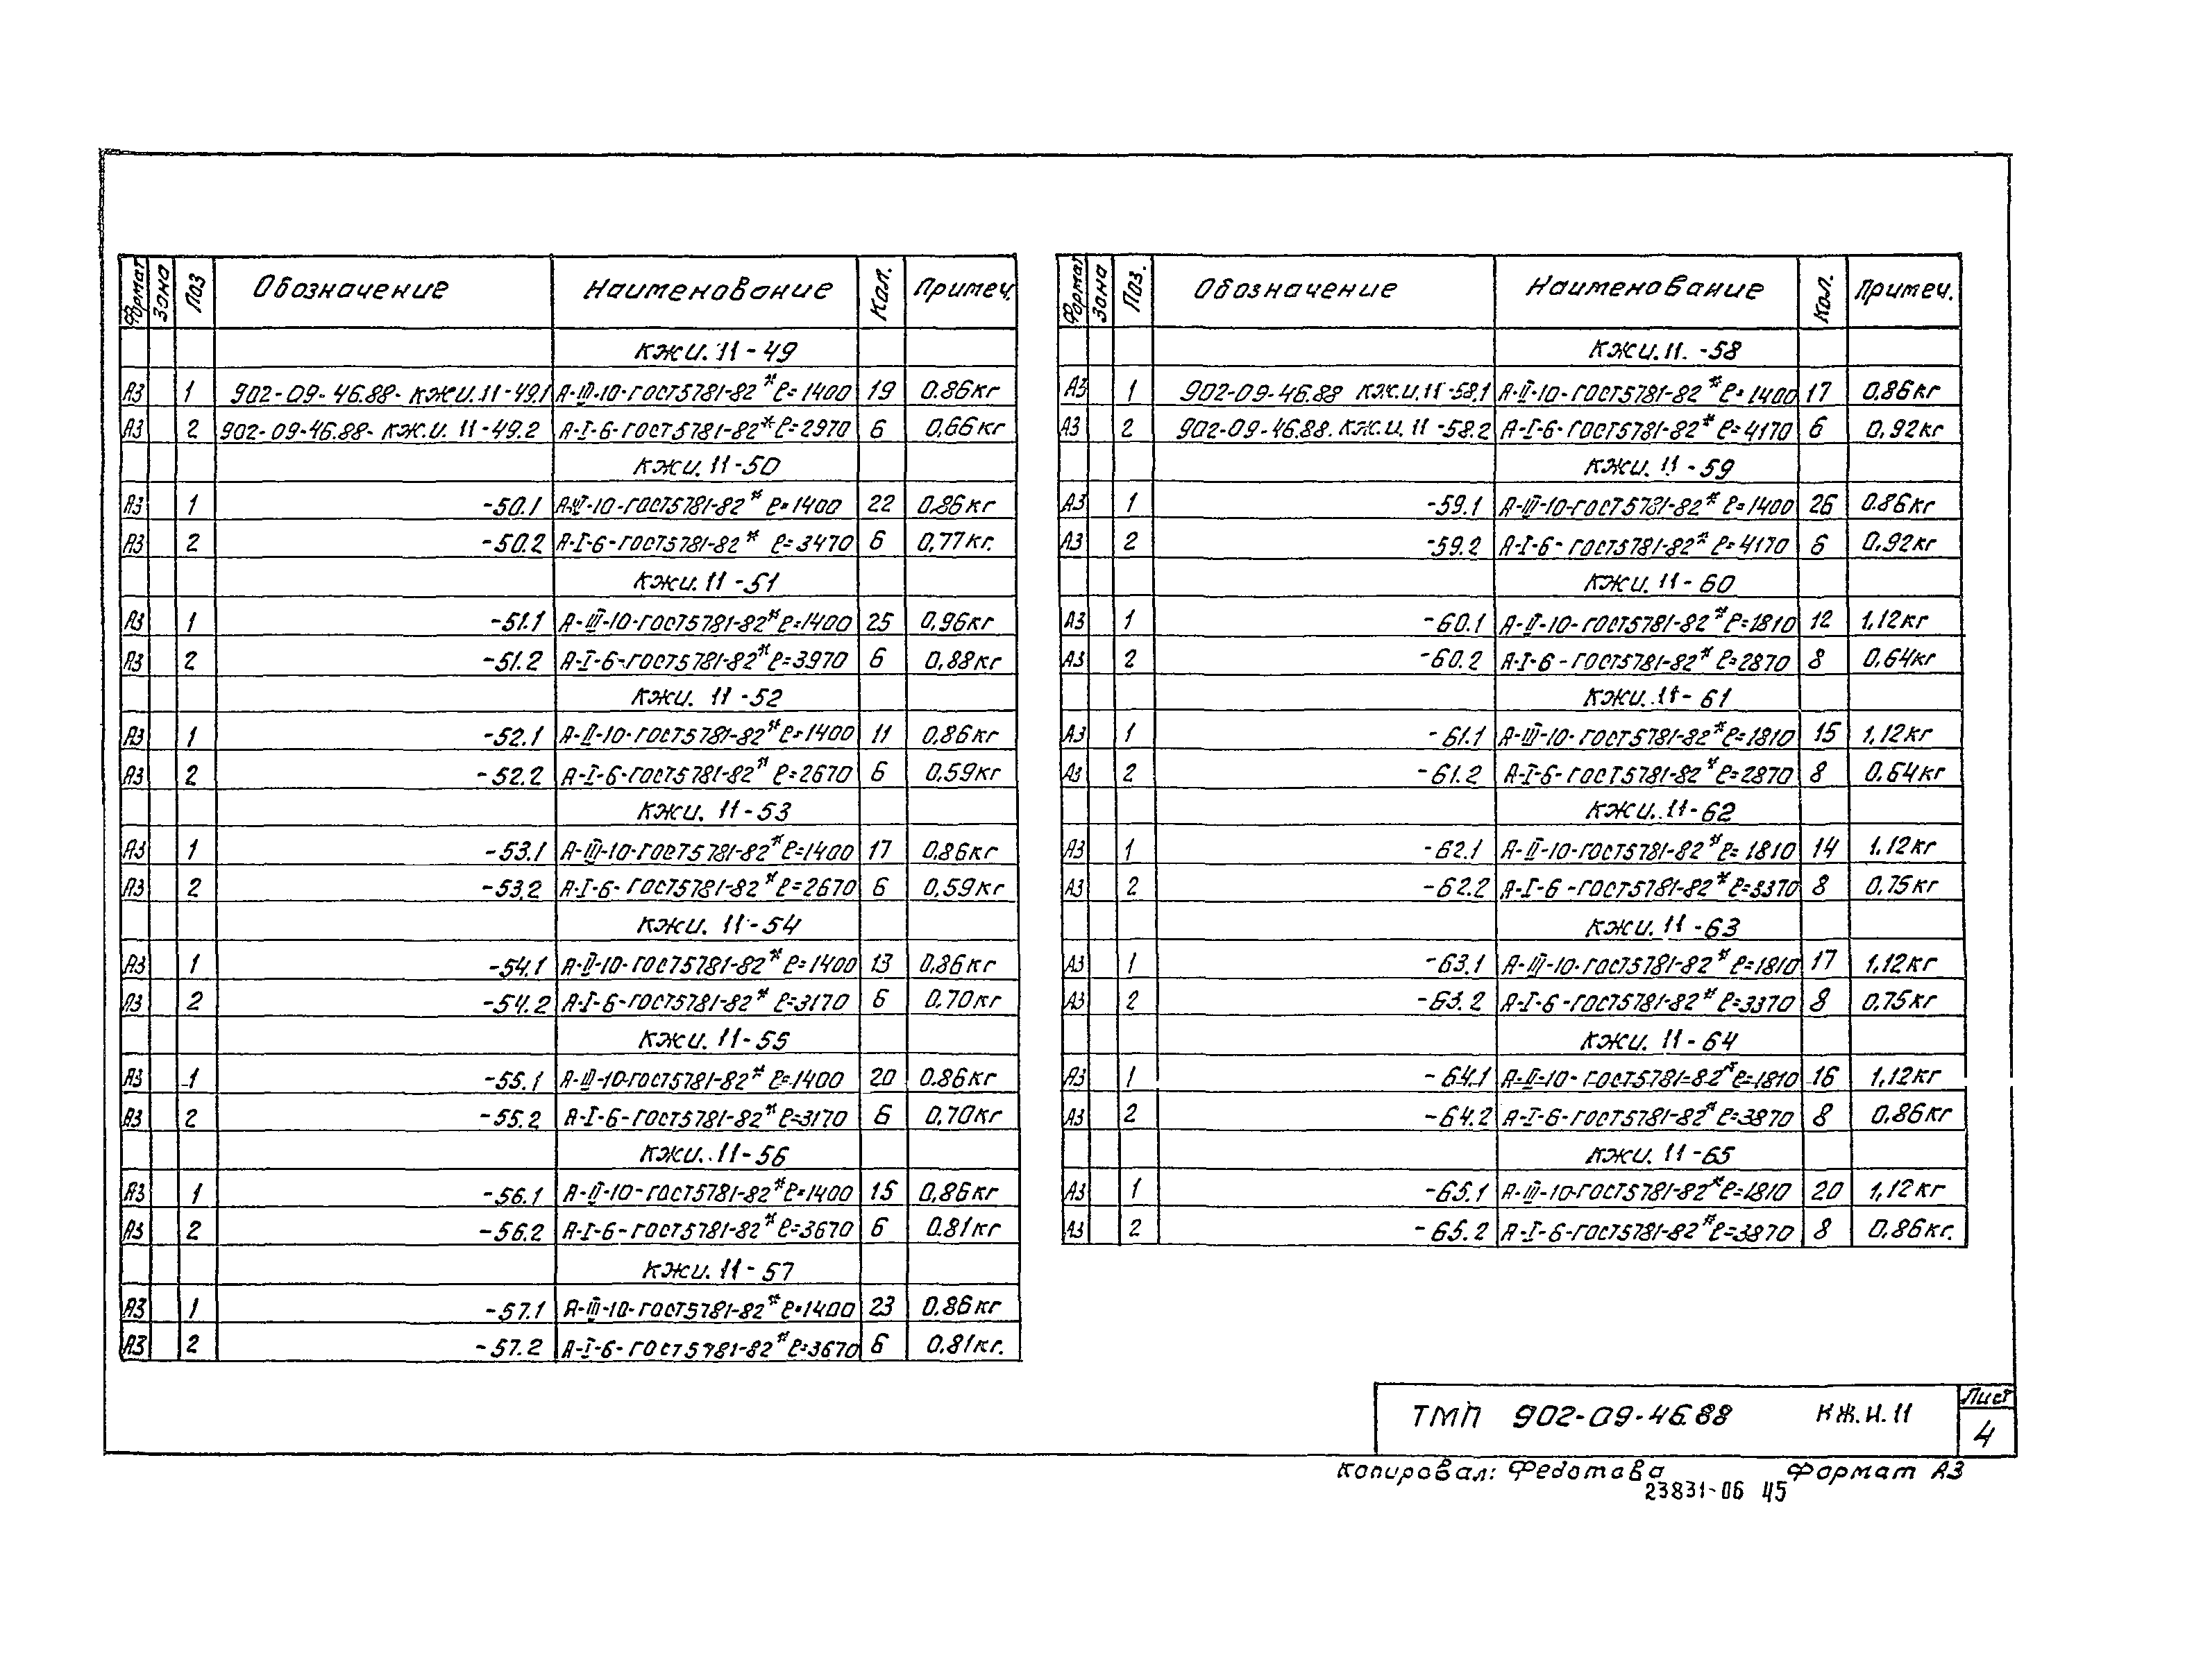 Формат Зона Поз Обозначение Наименование Кол. Примеч.
КЖИ. 11-49
А3 1 902-09-46.88-КЖИ.11-49.1 А-III-10-ГОСТ5781-82* ℓ=1400 19 0.86кг
А3 2 902-09-46.88-КЖ.И. 11-49.2 А-I-6-ГОСТ5781-82* ℓ=2970 6 0,66кг
КЖИ. 11-50
А3 1 -50.1 А-III-10-ГОСТ5781-82* ℓ=1400 22 0,86кг
А3 2 -50.2 А-I-6-ГОСТ5781-82* ℓ=3470 6 0,77кг.
КЖИ. 11-51
А3 1 -51.1 А-III-10-ГОСТ5781-82* ℓ=1400 25 0,96кг
А3 2 -51.2 А-I-6-ГОСТ5781-82* ℓ=3970 6 0,88кг
КЖИ. 11-52
А3 1 -52.1 А-II-10-ГОСТ5781-82* ℓ=1400 11 0,86кг
А3 2 -52.2 А-I-6-ГОСТ5781-82* ℓ=2670 6 0,59кг
КЖИ. 11-53
А3 1 -53.1 А-III-10-ГОСТ5781-82* ℓ=1400 17 0,86кг
А3 2 -53.2 А-I-6-ГОСТ5781-82* ℓ=2670 6 0,59кг
КЖИ. 11-54
А3 1 -54.1 А-II-10-ГОСТ5781-82* ℓ=1400 13 0,86кг
А3 2 -54.2 А-I-6-ГОСТ5781-82* ℓ=3170 6 0,70кг
КЖИ. 11-55
А3 1 -55.1 А-III-10-ГОСТ5781-82* ℓ=1400 20 0.86кг
А3 2 -55.2 А-I-6-ГОСТ5781-82* ℓ=3170 6 0,70кг
КЖИ. 11-56
А3 1 -56.1 А-II-10-ГОСТ5781-82* ℓ=1400 15 0,86кг
А3 2 -56.2 А-I-6-ГОСТ5781-82* ℓ=3670 6 0.81кг
КЖИ. 11-57
А3 1 -57.1 А-III-10-ГОСТ5781-82* ℓ=1400 23 0.86кг
А3 2 -57.2 А-I-6-ГОСТ5781-82* ℓ=3670 6 0.81кг.
Формат Зона Поз. Обозначение Наименование Кол. Примеч.
КЖИ.11. -58
А3 1 902-09-46.88 КЖ.И.11-58.1 А-II-10-ГОСТ5781-82* ℓ=1400 17 0,86кг
А3 2 902-09-46.88. КЖ.И. 11-58.2 А-I-6-ГОСТ5781-82* ℓ=4170 6 0,92кг
КЖИ. 11-59
А3 1 -59.1 А-III-10-ГОСТ5781-82* ℓ=1400 26 0.86кг
А3 2 -59.2 А-I-6-ГОСТ5781-82* ℓ=4170 6 0.92кг
КЖИ. 11-60
А3 1 -60.1 А-II-10-ГОСТ5781-82* ℓ=1810 12 1,12кг
А3 2 -60.2 А-I-6-ГОСТ5781-82* ℓ=2870 8 0,64кг
КЖИ. 11-61
А3 1 -61.1 А-III-10-ГОСТ5781-82* ℓ=1810 15 1,12кг
А3 2 -61.2 А-I-6-ГОСТ5781-82* ℓ=2870 8 0.64кг
КЖИ. 11-62
А3 1 -62.1 А-II-10-ГОСТ5781-82* ℓ=1810 14 1.12кг
А3 2 -62.2 А-I-6-ГОСТ5781-82* ℓ=3370 8 0,75кг
КЖИ. 11-63
А3 1 -63.1 А-III-10-ГОСТ5781-82* ℓ=1810 17 1,12кг
А3 2 -63.2 А-I-6-ГОСТ5781-82* ℓ=3370 8 0,75кг
КЖИ. 11-64
А3 1 -64.1 А-II-10-ГОСТ5781-82* ℓ=1810 16 1,12кг
А3 2 -64.2 А-I-6-ГОСТ5781-82* ℓ=3870 8 0,86кг
КЖИ. 11-65
А3 1 -65.1 А-III-10-ГОСТ5781-82* ℓ=1810 20 1,12кг
А3 2 -65.2 А-I-6-ГОСТ5781-82* ℓ=3870 8 0,86кг.
ТМП 902-09-46.88 КЖ.И.11
Лист
4
Копировал: Федотова Формат А3
23831-06 45